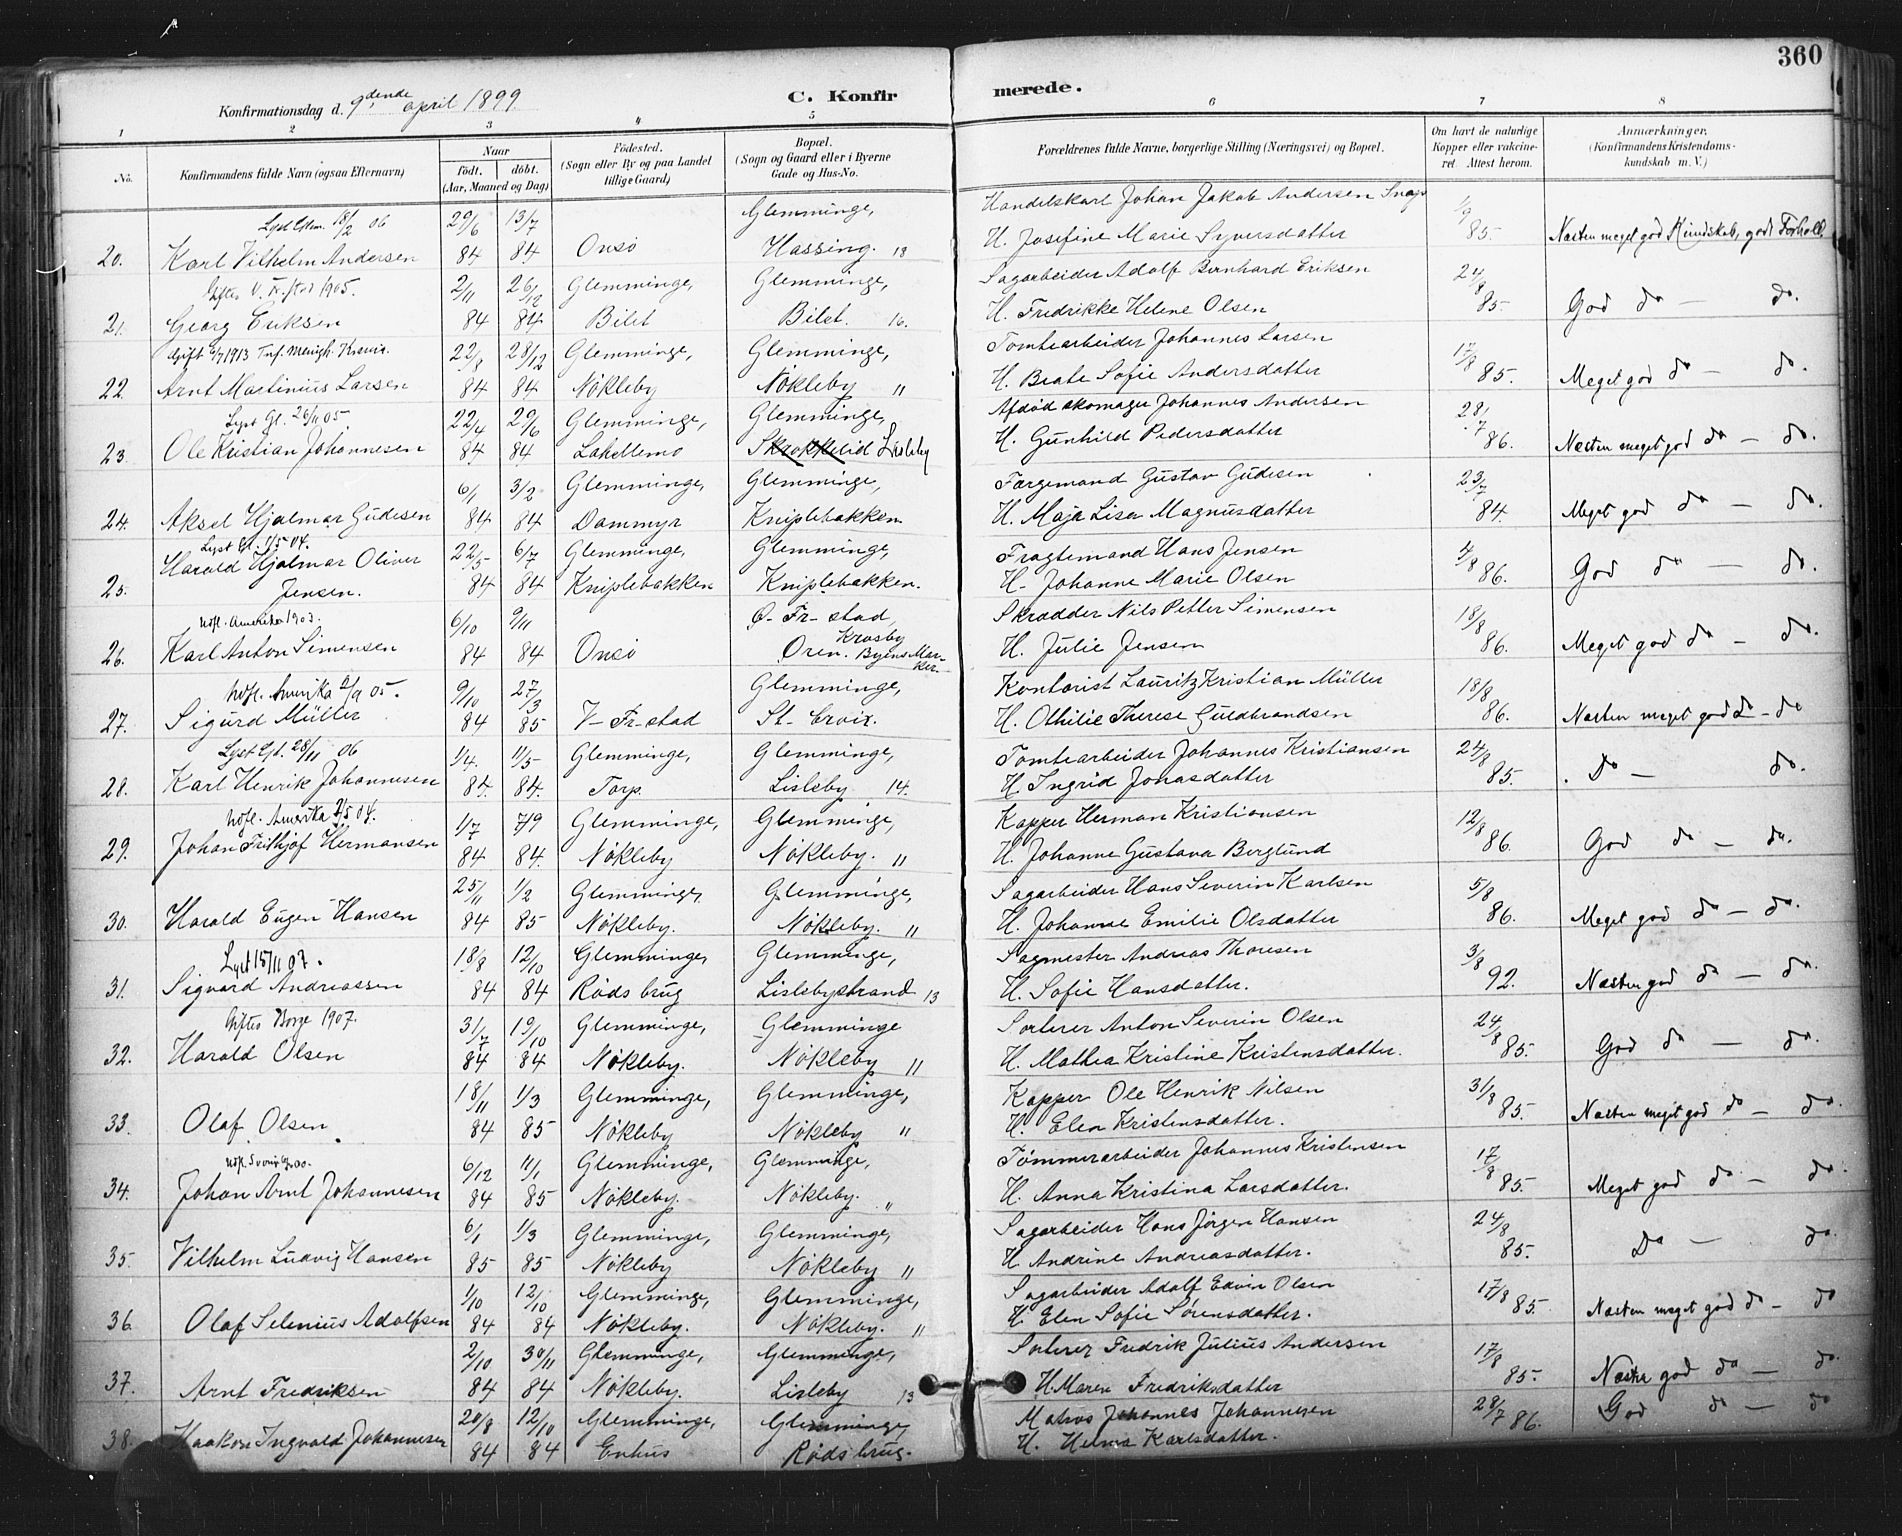 360
Konfirmationsdag d. 9dende april 1899
C. Konfirmerede.
1 2 3 4 5 6 7 8
No.
Konfirmandens fulde Navn (ogsaa Efternavn)
Naar
födt. döbt.
(Aar, Maaned og Dag)
Födested.
(Sogn eller By og paa Landet tillige Gaard)
Bopæl.
(Sogn og Gaard eller i Byerne Gade og Hus-No.
Forældrenes fulde Navne, borgerlige Stilling (Næringsvei) og Bopæl.
Om havt de naturlige Kopper eller vakcineret. Attest herom.
Anmærkninger.
(Konfirmandens Kristendomskundskab m. V.)
Lyst Glem. 18/2 06 29/6 13/7 Glemminge, Handelskarl Johan Jakob Andersen 1/9
20. Karl Vilhelm Andersen 84 84 Onsö Hassing. 13 H. Josefine Marie Syversdatter 85. Næsten meget god Kundskab, godt Forhold.
2/11 26/12 Glemminge, Glemminge, Sagarbeider Adolf Bernhard Eriksen 24/8
21. Georg Eriksen 84 84 Bilet Bilet. 16. H. Fredrikke Helene Olsen 85. God do — do.
22/8 28/12 Glemminge, Glemminge, Tomtearbeider Johannes Larsen 17/8
22. Arnt Martinius Larsen 84 84 Nökleby Nökleby " H. Beate Sofie Andersdatter 85. Meget god do — do.
Lyst Gl. 26/11 05 22/4 29/6 Glemminge, Glemminge, Afdød skomager Johannes Andersen 28/7
23. Ole Kristian Johannesen 84 84 Lahellemo Skrokkelid Lisleby H. Gunhild Pedersdatter 86. Næsten meget god do — do.
6/1 3/2 Glemminge, Glemminge, Færgemand Gustav Gudesen 23/7
24. Aksel Hjalmar Gudesen 84 84 Dammyr Kniplebakken H. Maja Lisa Magnusdatter 84. Meget god do — do.
Lyst Gl. 1/5 04. 22/5 6/7 Glemminge, Glemminge, Fragtemand Hans Jensen 4/8
25. Harald Hjalmar Oliver Jensen. 84 84 Kniplebakken Kniplebakken. H. Johanne Marie Olsen 86. God do — do.
Udfl. Amerika 1903. 6/10 9/11 Ö. Fr-stad, Skrædder Nils Petter Simensen 18/8
26. Karl Anton Simensen 84 84 Onsö Oren. Krosby Byens Marker. H. Julie Jensen 86. Meget god do — do.
Udfl. Amerika 2/9 05. 9/10 27/3 Glemminge, Kontorist Lauritz Kristian Müller 18/8
27. Sigurd Müller 84 85 V-Fr-stad St. Croix. H. Othilie Therese Guldbrandsen 86. Næsten meget god do — do
Lyst Gl. 28/11 06 1/4. 11/5 Glemminge, Glemminge, Tomtearbeider Johannes Kristiansen 24/8
28. Karl Henrik Johannesen 84. 84. Torp. Lisleby 14. H. Ingrid Jonasdatter 85. Do — do.
Udfl. Amerika 3/5 04. 1/7 7/9 Glemminge, Glemminge, Kapper Herman Kristiansen 12/8
29. Johan Frithjof Hermansen 84 84. Nökleby Nökleby. " H. Johanne Gustava Berglund 86. God do — do.
25/11 1/2 Glemminge, Glemminge, Sagarbeider Hans Severin Karlsen 5/8
30. Harald Eugen Hansen 84 85 Nökleby. Nökleby. " H. Johanne Emilie Olsdatter 86. Meget god do — do.
Lyst 15/11 07. 18/8 12/10 Glemminge, Glemminge, Sagmester Andreas Thoresen 3/8
31. Sigvard Andreassen 84 84 Röds brug Lislebystrand 13 H. Sofie Hansdatter. 92. Næsten god do — do.
Giftes Borge 1907. 31/7 19/10 Glemminge, Glemminge Sorterer Anton Severin Olsen 24/8
32. Harald Olsen 84 84 Nökleby. Nökleby " H. Mathea Kristine Kristensdatter. 85. God do — do.
18/11 1/3 Glemminge, Glemminge, Kapper Ole Henrik Nilsen 31/8
33. Olaf Olsen 84 85 Nökleby Nökleby " H. Elen Kristensdatter. 85. Næsten meget god do — do.
6/12 11/1 Glemminge, Glemminge, Tömmerarbeider Johannes Kristensen 17/8
34. Johan Arnt Johannesen 84 85 Nökleby. Nökleby. " H. Anna Kristina Larsdatter. 85. Meget god do — do
6/1 1/3 Glemminge, Glemminge, Sagarbeider Hans Jörgen Hansen 24/8
35. Vilhelm Ludvig Hansen 85 85 Nökleby Nökleby " H. Andrine Andreasdatter. 85. Do — do.
1/10 12/10 Glemminge, Glemminge, Sagarbeider Adolf Edvin Olsen 17/8
36. Olaf Selenius Adolfsen 84 84 Nökleby. Nökleby. " H. Elen Sofie Sörensdatter. 85. Næsten meget god do — do
2/10 30/11 Glemminge, Glemminge, Sorterer Fredrik Julius Andersen 17/8
37. Arnt Fredriksen 84 84 Nökleby. Lisleby 13 H. Maren Fredriksdatter 85. Næsten god do — do.
20/8 12/10 Glemminge, Glemminge, Matros Johannes Johannesen 28/7 86. God do — do
38. Haakon Ingvald Johannesen 84 84 Enhus Röds brug. H. Helma Karlsdatter.